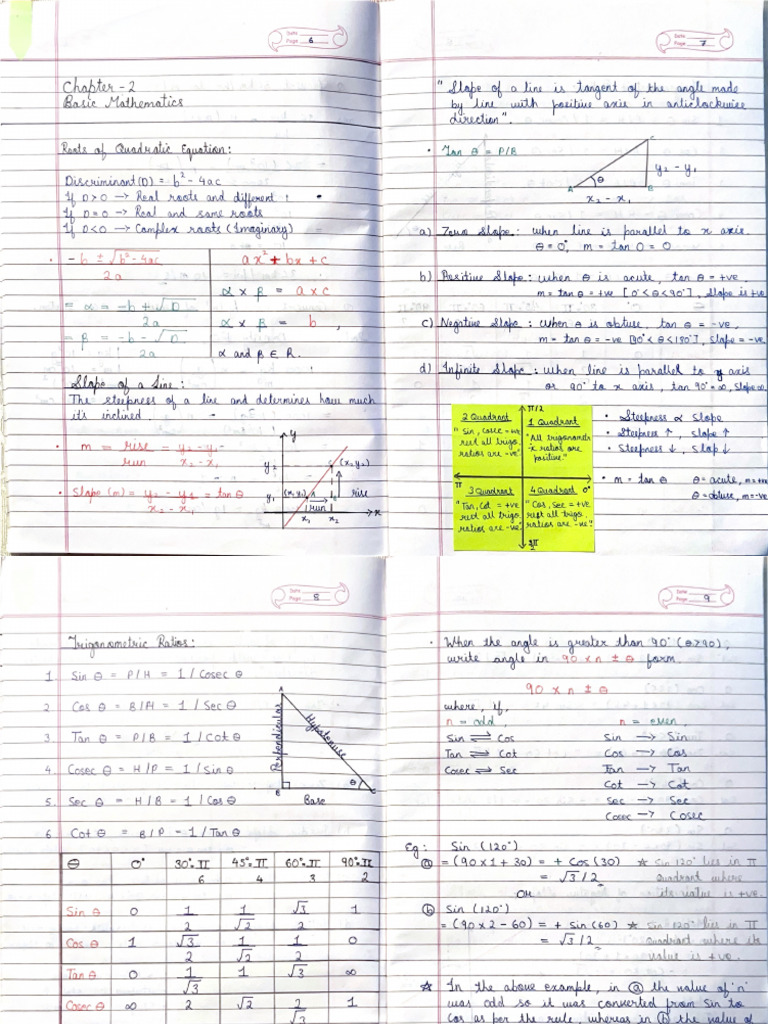 Date
Page 6
Chapter - 2
Basic Mathematics
Roots of Quadratic Equation:
Discriminant (D) = b² - 4ac
If D>0 → Real roots and different
If D=0 → Real and same roots
If D<0 → Complex roots (Imaginary)
-b ± √b²-4ac
2a
= α = -b + √D
2a
= β = -b - √D
2a
ax² + bx + c
α × β = a×c
α × β = b,
α and β ∈ R.
Slope of a line:
The steepness of a line and determines how much
it's inclined
• m = rise = y₂ - y₁
run x₂ - x₁
• Slope (m) = y₂ - y₁ = tan θ
x₂ - x₁
y
y₂
(x₂ y₂)
y₁
(x₁ y₁) A
rise
run
x₁ x₂
x
Date
Page 7
"Slope of a line is tangent of the angle made
by line with positive axis in anticlockwise
direction".
• Tan θ = P/B
θ
A
B
y₂ - y₁
x₂ - x₁
a) Zero Slope: when line is parallel to x axis.
θ = 0°, m = tan 0 = 0
b) Positive Slope: when θ is acute, tan θ = +ve
m = tan θ = +ve [0°<θ<90°], Slope is +ve
c) Negative Slope: when θ is obtuse, tan θ = -ve,
m = tan θ = -ve [90°<θ<180°], slope = -ve
d) Infinite Slope: when line is parallel to y axis
or 90° to x axis, tan 90° = ∞, Slope ∞
π/2
2 Quadrant
"Sin, cosec = +ve
rest all trigo.
ratios are -ve"
1 Quadrant
"All trigonometri
-x ratios are
positive."
π
0°
3 Quadrant
"Tan, Cot = +ve
rest all trigo
ratios are -ve"
4 Quadrant
"Cos, Sec = +ve
rest all trigo.
ratios are -ve"
• Steepness ∝ slope
• Steepness ↑, slope ↑
• Steepness ↓, slop ↓
• m = tan θ θ = acute, m = +ve
θ = obtuse, m = -ve
Date
Page 8
Trigonometric Ratios:
1. Sin θ = P/H = 1/Cosec θ
2. Cos θ = B/H = 1/Sec θ
3. Tan θ = P/B = 1/Cot θ
4. Cosec θ = H/P = 1/Sin θ
5. Sec θ = H/B = 1/Cos θ
6. Cot θ = B/P = 1/Tan θ
A
Perpendicular
Hypotenuse
θ
B
Base
θ 0° 30°=π 45°=π 60°=π 90°=π
6 4 3 2
Sin θ 0 1 1 √3 1
2 √2 2
Cos θ 1 √3 1 1 0
2 √2 2
Tan θ 0 1 1 √3 ∞
√3
Cosec θ ∞ 2 √2 2 1
√3
Date
Page 9
• When the angle is greater than 90° (θ>90),
write angle in 90 × n ± θ form.
90 × n ± θ
where, if,
n = odd, n = even,
Sin ⇌ Cos Sin → Sin
Tan ⇌ Cot Cos → Cos
Cosec ⇌ Sec Tan → Tan
Cot → Cot
Sec → Sec
Cosec → Cosec
Eg: Sin (120°)
ⓐ = (90×1 + 30) = + Cos (30) ☆ Sin 120° lies in II
= √3/2 Quadrant where
OR its value is +ve.
ⓑ Sin (120°)
= (90×2 - 60) = + Sin (60) ☆ Sin 120° lies in II
= √3/2 Quadrant where its
value is +ve.
☆ In the above example, in ⓐ the value of 'n'
was odd so it was converted from Sin to
Cos as per the rule, whereas in ⓑ the value of